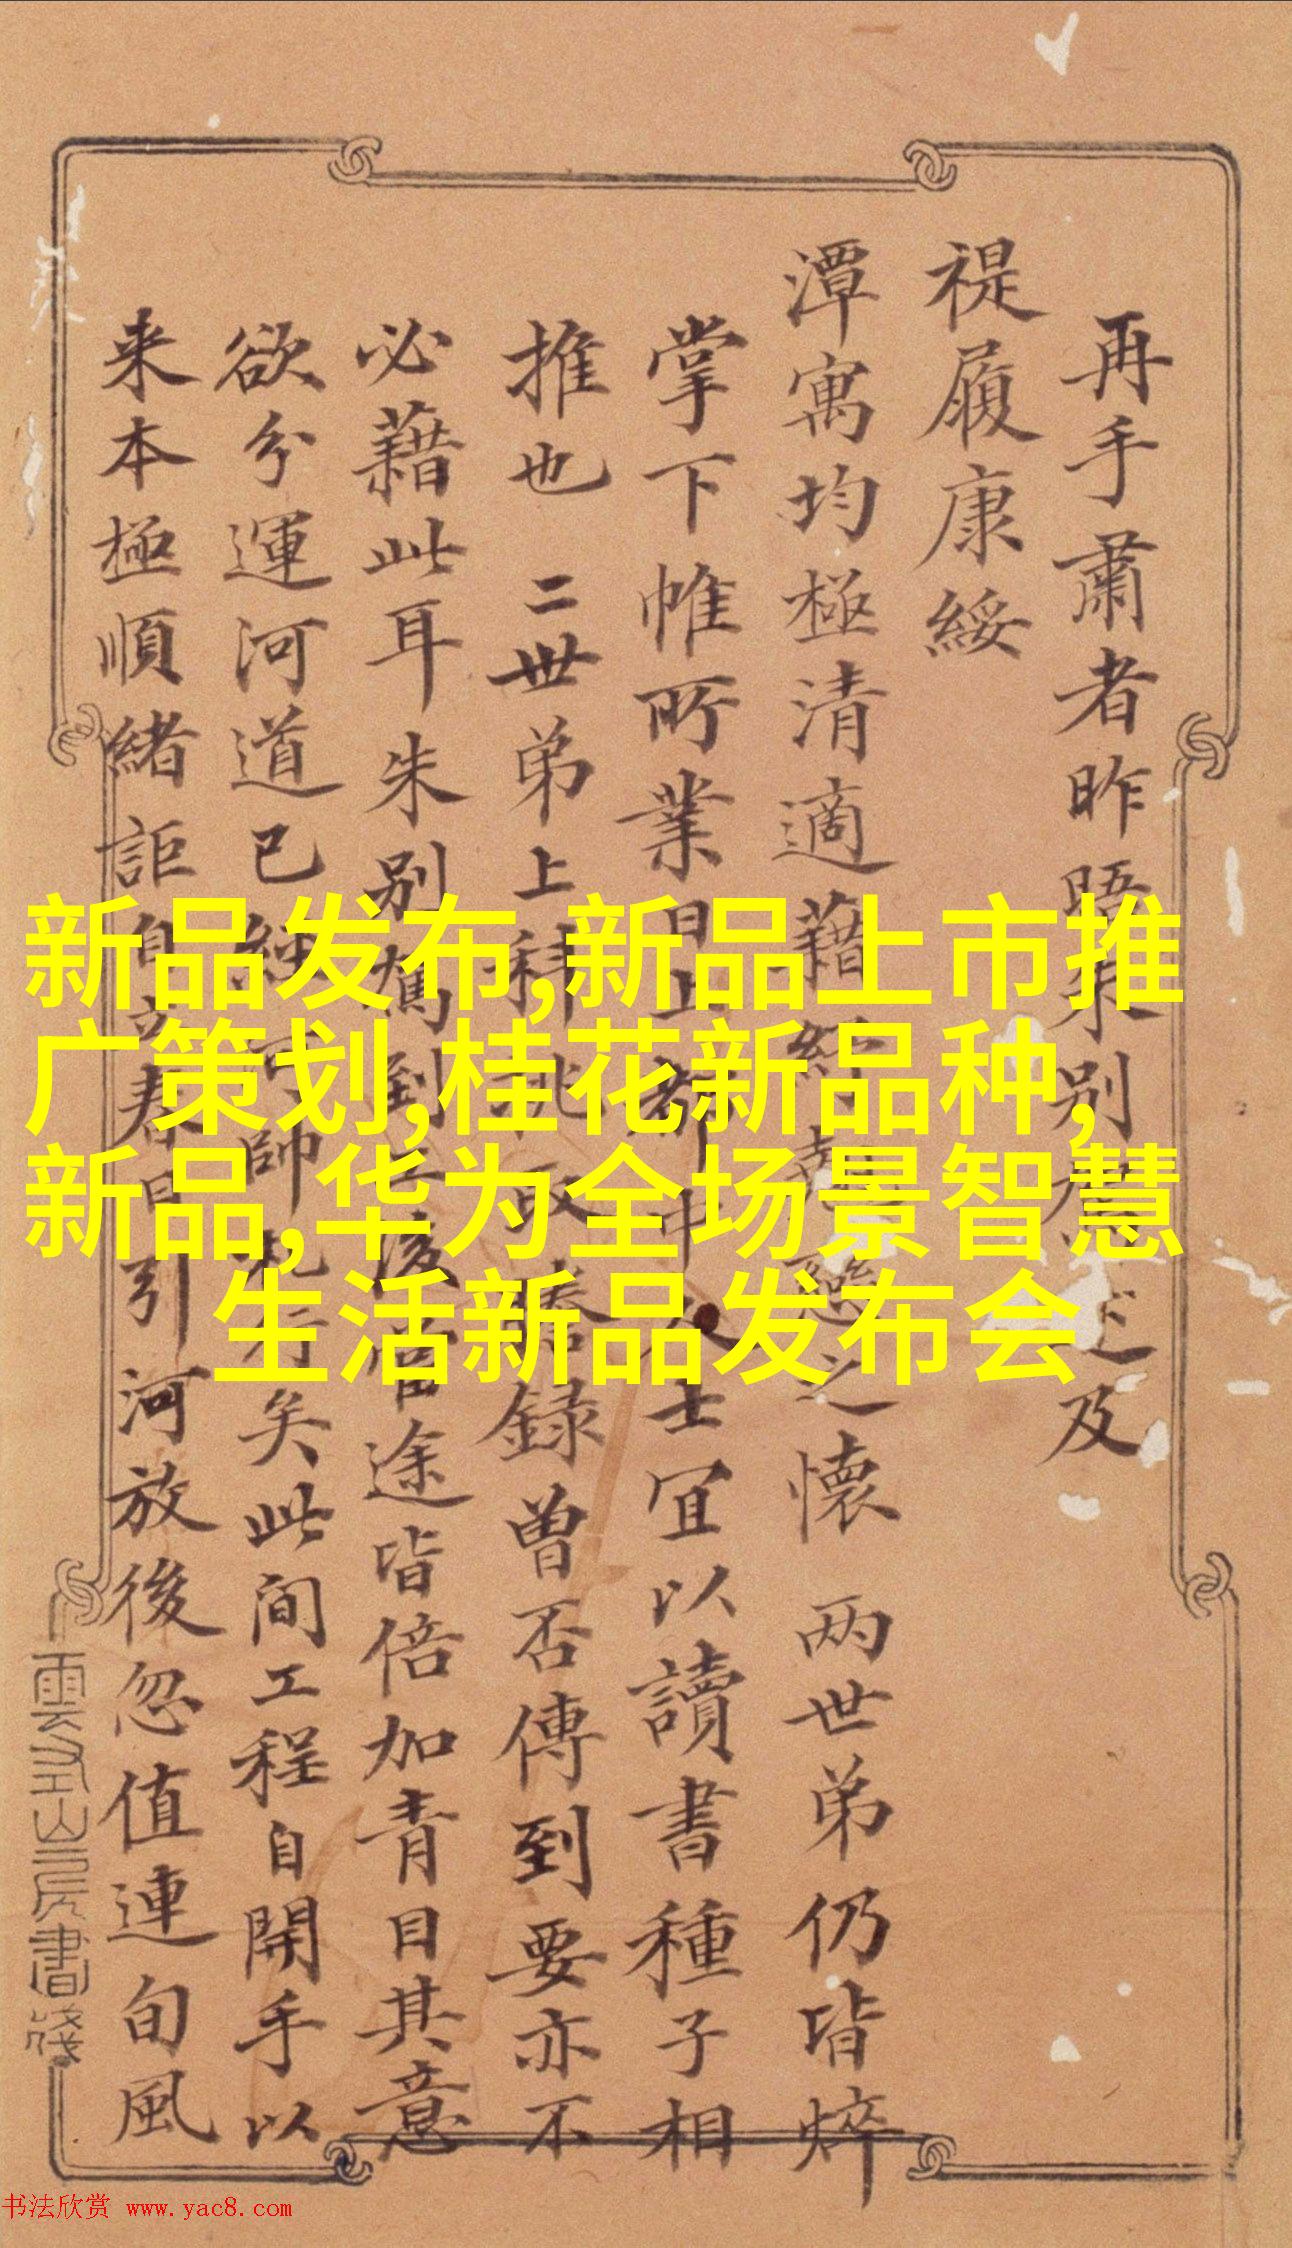 再手肅者昨晤朱別駕述及
禔履康綏
潭寓均極清適藉慰之懷 兩世弟仍皆焠
掌下帷所業日上都中人士宜以讀書種子相
推也 二世弟上科北闈謄錄曾否傳到要亦不
必藉此耳朱別駕到工後當途皆倍加青目其意
欲分運河道已經河帥札行矣此間工程自開手以
来本極順緒詎自立春日引河放後忽值連旬風
雲山房書箋
新品发布,新品上市推
广策划,桂花新品种,
新品,华为全场景智慧
生活新品发布会
书法欣赏 www.yac8.com